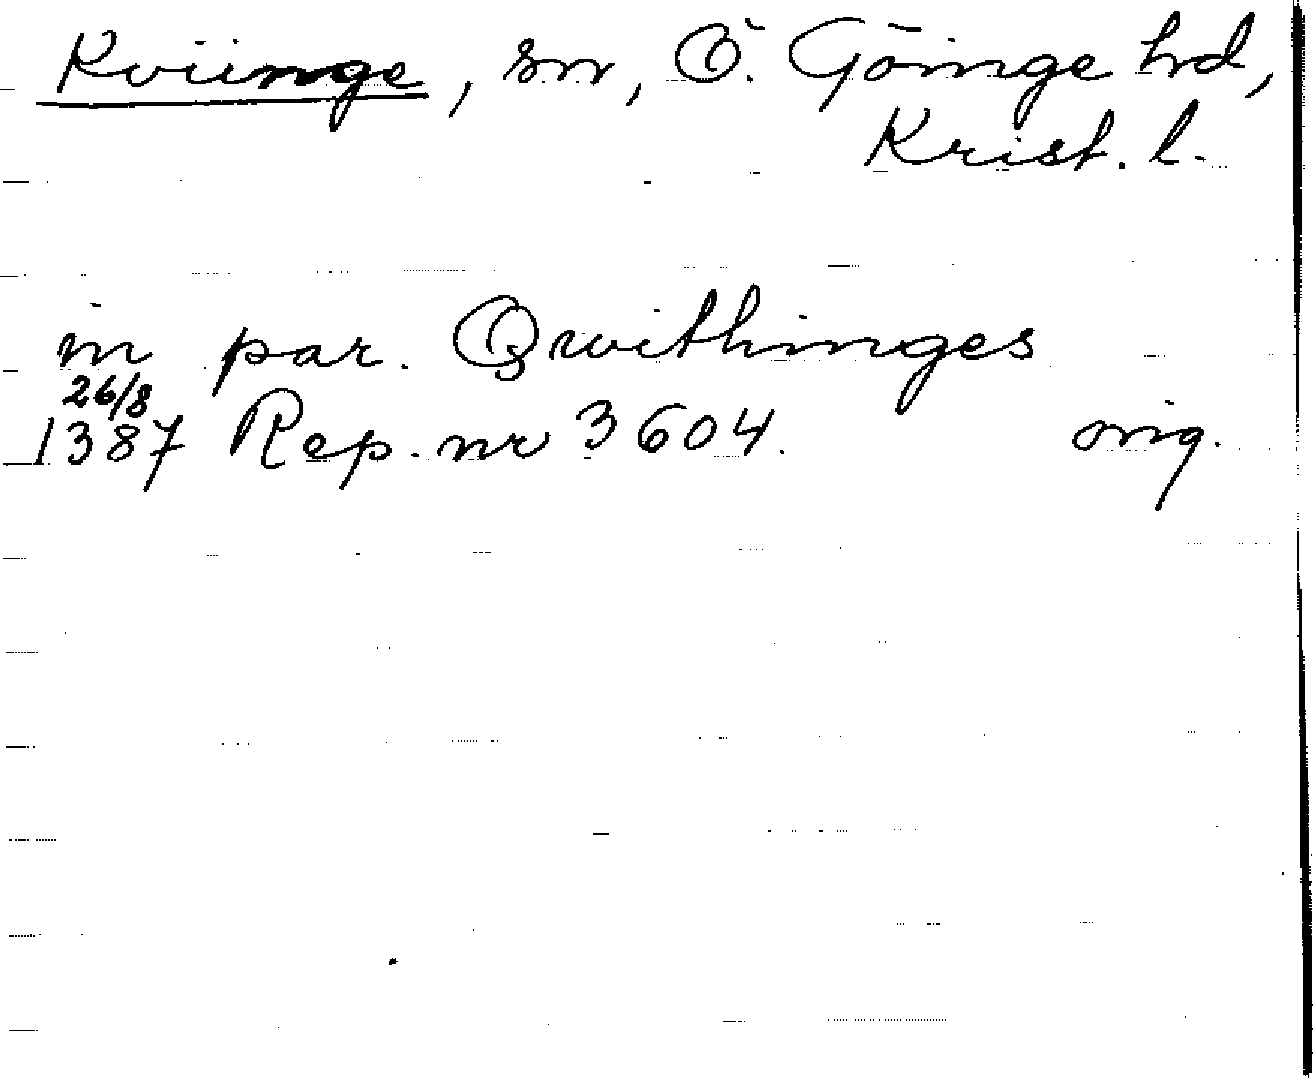 Kviinge, sn, Ö. Göinge hd,
Krist. l.
in par. Qwithinges
26/8
1387 Rep. nr 3604. orig.